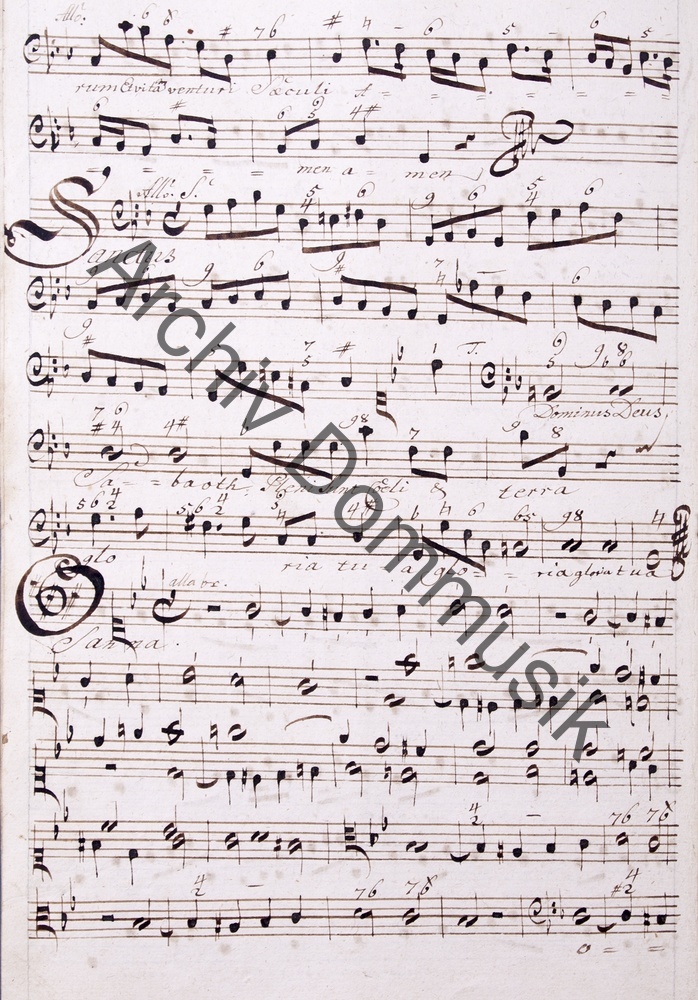 Allo.
rum Et vita venturi Sæculi A = = = = =
men a - men
Allo. S.
Sanctus
T.
Dominus Deus
Sa - - baoth. Pleni sunt Cœli & terra
glo ria tu - a glo - - ria gloria tua
alla br.
Osanna.
O = =
Archiv Dommusik